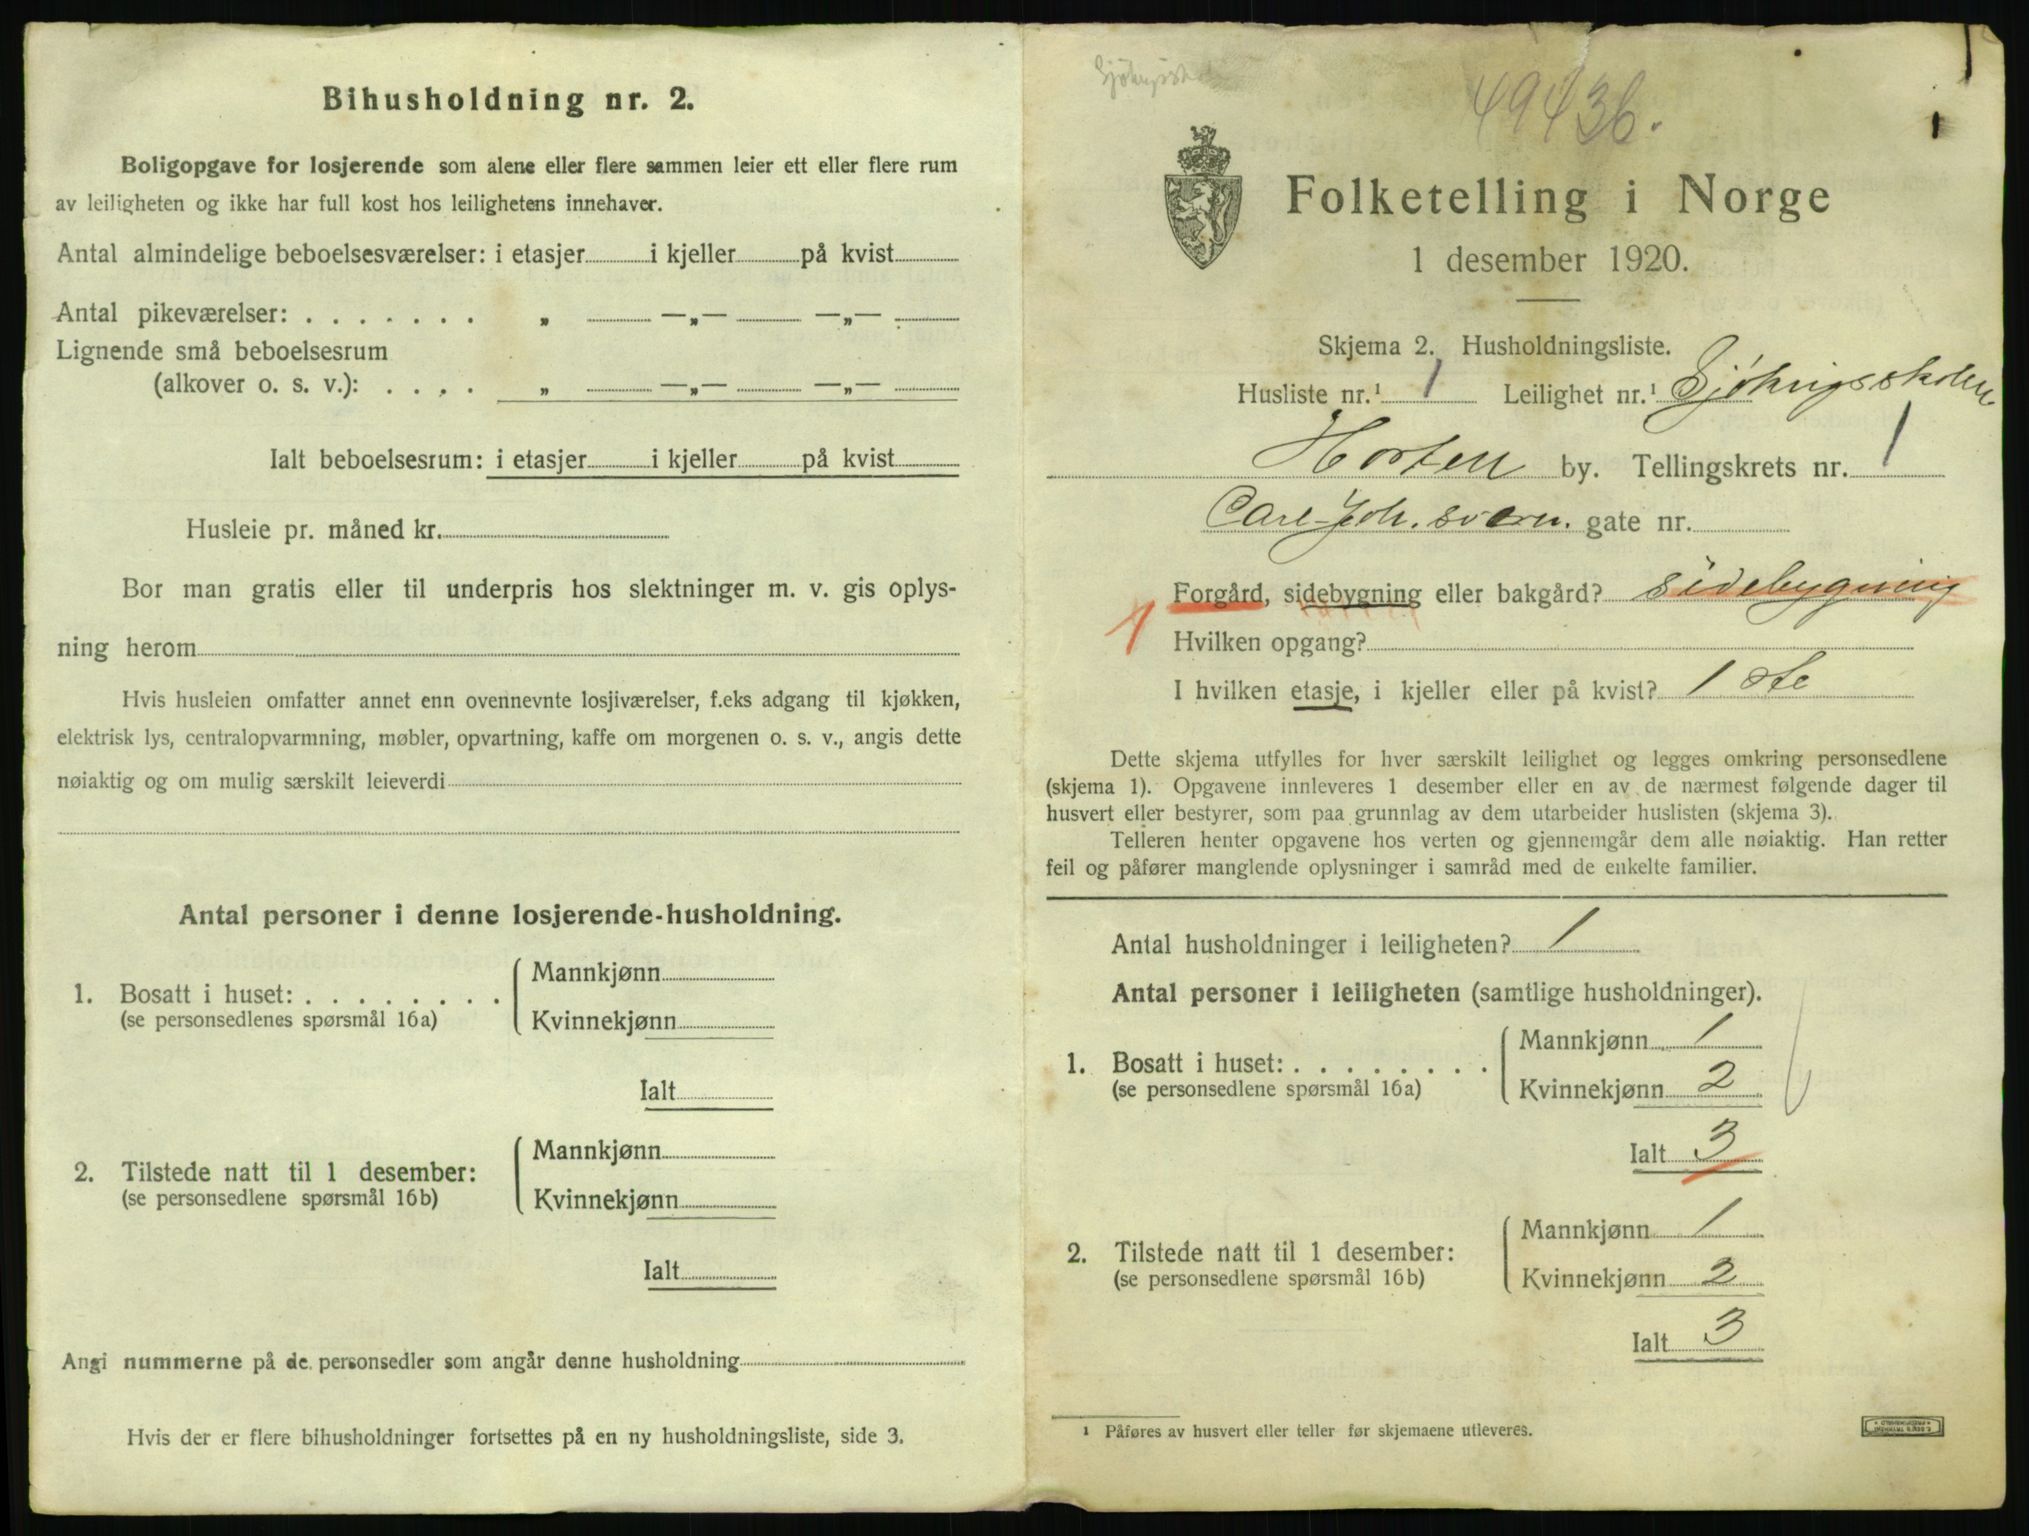 Bihusholdning nr. 2.
Boligopgave for losjerende som alene eller flere sammen leier ett eller flere rum
av leiligheten og ikke har full kost hos leilighetens innehaver.
Antal almindelige beboelsesværelser: i etasjer i kjeller på kvist
Antal pikeværelser: . . . . . . . „ —„— —„—
Lignende små beboelsesrum
(alkover o. s. v.): . . . . „ —„— —„—
Ialt beboelsesrum: i etasjer i kjeller på kvist
Husleie pr. måned kr.
Bor man gratis eller til underpris hos slektninger m. v. gis oplys-
ning herom
Hvis husleien omfatter annet enn ovennevnte losjiværelser, f.eks adgang til kjøkken,
elektrisk lys, centralopvarmning, møbler, opvartning, kaffe om morgenen o. s. v., angis dette
nøiaktig og om mulig særskilt leieverdi
Antal personer i denne losjerende-husholdning.
1. Bosatt i huset: . . . . . . . . Mannkjønn
(se personsedlenes spørsmål 16a) Kvinnekjønn
Ialt
2. Tilstede natt til 1 desember: Mannkjønn
(se personsedlene spørsmål 16b) Kvinnekjønn
Ialt
Angi nummerne på de personsedler som angår denne husholdning
Hvis der er flere bihusholdninger fortsettes på en ny husholdningsliste, side 3.
49436.
Folketelling i Norge
1 desember 1920.
Skjema 2. Husholdningsliste.
Husliste nr.¹ 1 Leilighet nr.¹ Sjökrigsskolen
Horten by. Tellingskrets nr. 1
Carl-Joh. svern. gate nr.
Forgård, sidebygning eller bakgård? sidebygning
Hvilken opgang?
I hvilken etasje, i kjeller eller på kvist? 1 ste
Dette skjema utfylles for hver særskilt leilighet og legges omkring personsedlene
(skjema 1). Opgavene innleveres 1 desember eller en av de nærmest følgende dager til
husvert eller bestyrer, som paa grunnlag av dem utarbeider huslisten (skjema 3).
Telleren henter opgavene hos verten og gjennemgår dem alle nøiaktig. Han retter
feil og påfører manglende oplysninger i samråd med de enkelte familier.
Antal husholdninger i leiligheten? 1
Antal personer i leiligheten (samtlige husholdninger).
1. Bosatt i huset: . . . . . . . . Mannkjønn 1
(se personsedlene spørsmål 16a) Kvinnekjønn 2
Ialt 3
2. Tilstede natt til 1 desember: Mannkjønn 1
(se personsedlene spørsmål 16b) Kvinnekjønn 2
Ialt 3
¹ Påføres av husvert eller teller før skjemaene utleveres.